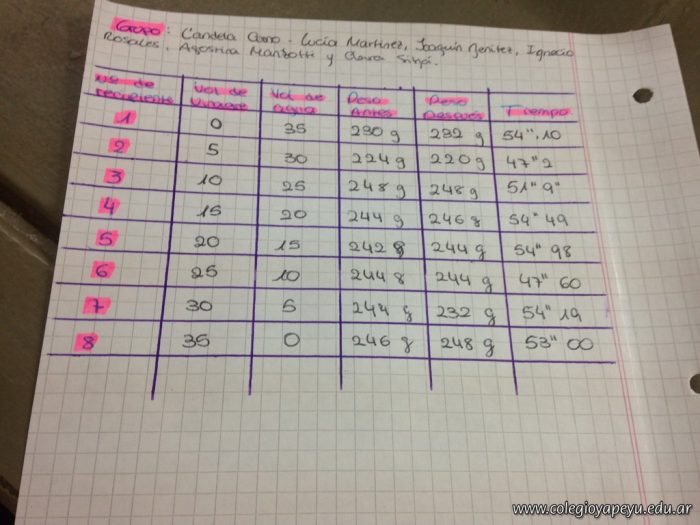 Grupo: Candela Cano - Lucía Martinez, Joaquín Benitez, Ignacio
Rosales, Agostina Manzotti y Clara
Nº de recipiente Vol de Vinagre Vol de agua Peso Antes Peso Después Tiempo
1 0 35 230 g 232 g 54".10
2 5 30 224 g 220 g 47" 2
3 10 25 248 g 248 g 51" 9"
4 15 20 244 g 246 g 54" 49
5 20 15 242 g 244 g 54" 98
6 25 10 244 g 244 g 47" 60
7 30 5 244 g 232 g 54" 19
8 35 0 246 g 248 g 53" 00
www.colegioyapeyu.edu.ar